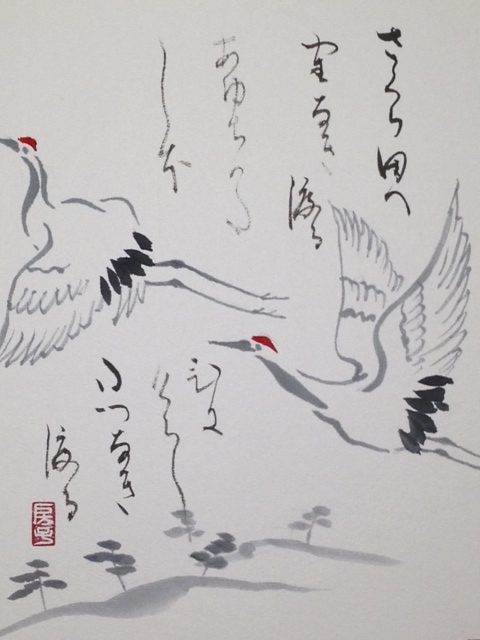 さくら田へ
寉なき
渡る
あゆちかた
しほ
ひに
けらし
たつなき
渡る